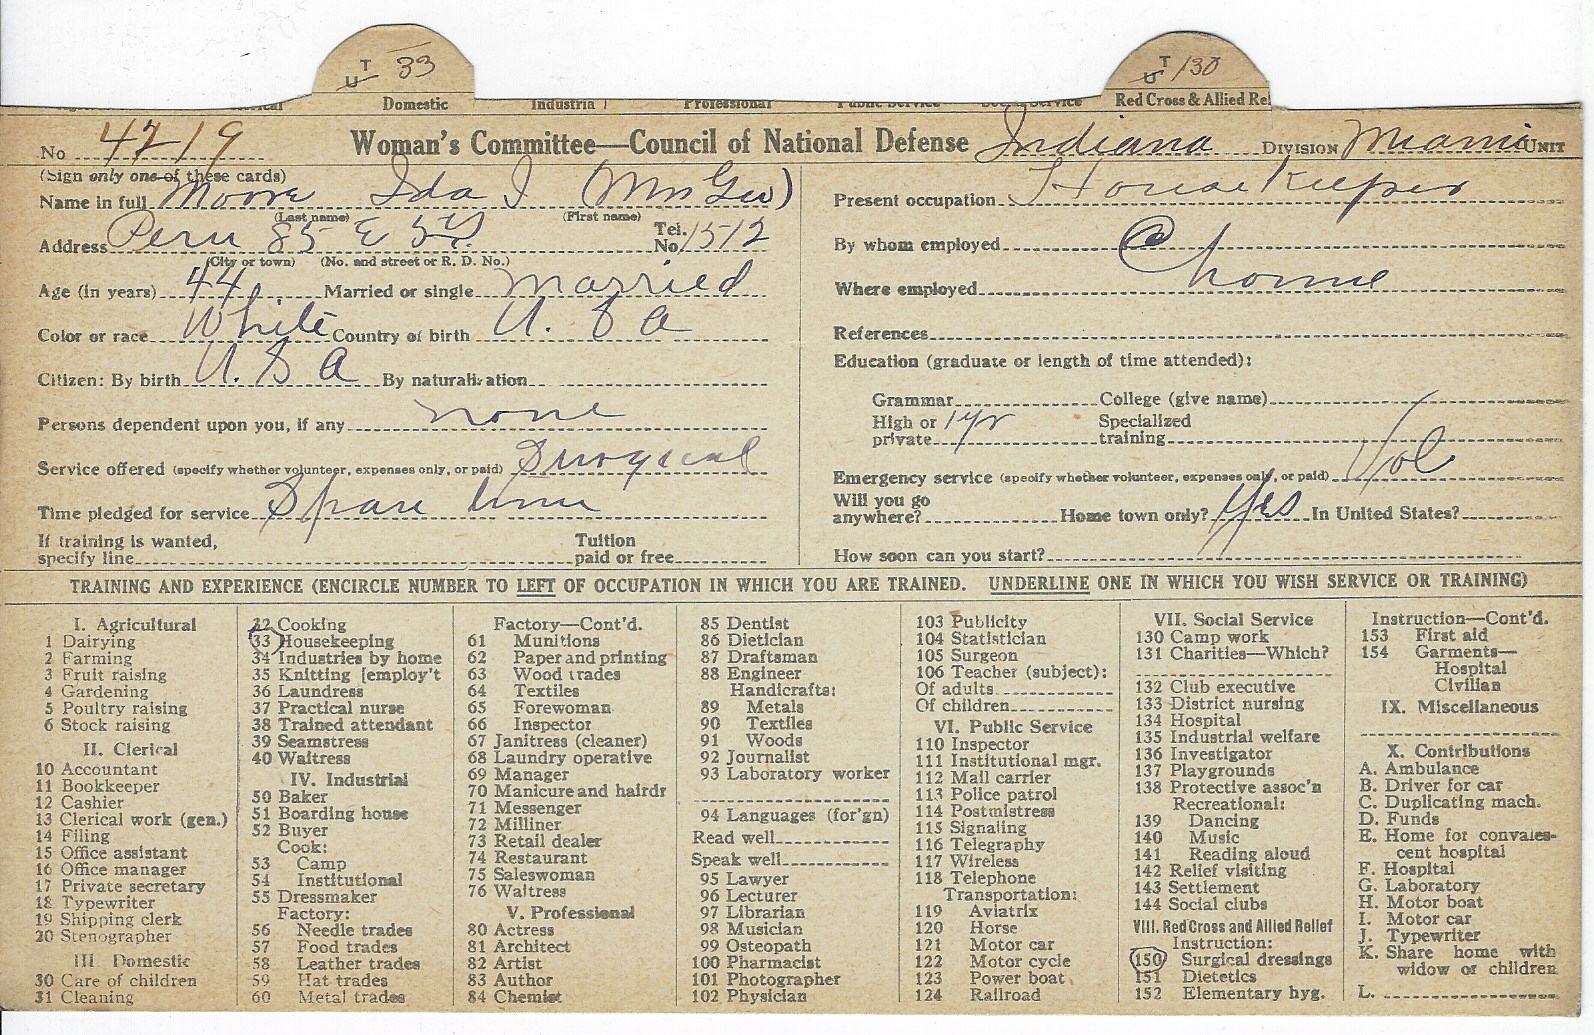 T 33 T 130
U U
Domestic Industrial Professional Public Service Social Service Red Cross & Allied Rel
No 4719 Woman's Committee—Council of National Defense Indiana DIVISION Miami UNIT
(Sign only one of these cards)
Name in full Moore Ida J (Mrs Geo)
(Last name) (First name)
Address Peru 85 E 5th Tel. No. 1512
(City or town) (No. and street or R. D. No.)
Age (in years) 44 Married or single married
Color or race White Country of birth U. S a
Citizen: By birth U. S A By naturalization
Persons dependent upon you, if any none
Service offered (specify whether volunteer, expenses only, or paid) Surgical
Time pledged for service Spare time
If training is wanted, specify line Tuition paid or free
Present occupation House Keeper
By whom employed @
Where employed home
References
Education (graduate or length of time attended):
Grammar College (give name)
High or private 1 yr Specialized training
Emergency service (specify whether volunteer, expenses only, or paid) Vol
Will you go anywhere? Home town only? Yes In United States?
How soon can you start?
TRAINING AND EXPERIENCE (ENCIRCLE NUMBER TO LEFT OF OCCUPATION IN WHICH YOU ARE TRAINED. UNDERLINE ONE IN WHICH YOU WISH SERVICE OR TRAINING)
I. Agricultural
1 Dairying
2 Farming
3 Fruit raising
4 Gardening
5 Poultry raising
6 Stock raising
II. Clerical
10 Accountant
11 Bookkeeper
12 Cashier
13 Clerical work (gen.)
14 Filing
15 Office assistant
16 Office manager
17 Private secretary
18 Typewriter
19 Shipping clerk
20 Stenographer
III Domestic
30 Care of children
31 Cleaning
32 Cooking
33 Housekeeping
34 Industries by home
35 Knitting [employ't
36 Laundress
37 Practical nurse
38 Trained attendant
39 Seamstress
40 Waitress
IV. Industrial
50 Baker
51 Boarding house
52 Buyer
Cook:
53 Camp
54 Institutional
55 Dressmaker
Factory:
56 Needle trades
57 Food trades
58 Leather trades
59 Hat trades
60 Metal trades
Factory—Cont'd.
61 Munitions
62 Paper and printing
63 Wood trades
64 Textiles
65 Forewoman
66 Inspector
67 Janitress (cleaner)
68 Laundry operative
69 Manager
70 Manicure and hairdr
71 Messenger
72 Milliner
73 Retail dealer
74 Restaurant
75 Saleswoman
76 Waitress
V. Professional
80 Actress
81 Architect
82 Artist
83 Author
84 Chemist
85 Dentist
86 Dietician
87 Draftsman
88 Engineer
Handicrafts:
89 Metals
90 Textiles
91 Woods
92 Journalist
93 Laboratory worker
94 Languages (for'gn)
Read well
Speak well
95 Lawyer
96 Lecturer
97 Librarian
98 Musician
99 Osteopath
100 Pharmacist
101 Photographer
102 Physician
103 Publicity
104 Statistician
105 Surgeon
106 Teacher (subject):
Of adults
Of children
VI. Public Service
110 Inspector
111 Institutional mgr.
112 Mail carrier
113 Police patrol
114 Postmistress
115 Signaling
116 Telegraphy
117 Wireless
118 Telephone
Transportation:
119 Aviatrix
120 Horse
121 Motor car
122 Motor cycle
123 Power boat
124 Railroad
VII. Social Service
130 Camp work
131 Charities—Which?
132 Club executive
133 District nursing
134 Hospital
135 Industrial welfare
136 Investigator
137 Playgrounds
138 Protective assoc'n
Recreational:
139 Dancing
140 Music
141 Reading aloud
142 Relief visiting
143 Settlement
144 Social clubs
VIII. Red Cross and Allied Relief
Instruction:
150 Surgical dressings
151 Dietetics
152 Elementary hyg.
Instruction—Cont'd.
153 First aid
154 Garments—
Hospital
Civilian
IX. Miscellaneous
X. Contributions
A. Ambulance
B. Driver for car
C. Duplicating mach.
D. Funds
E. Home for convales-
cent hospital
F. Hospital
G. Laboratory
H. Motor boat
I. Motor car
J. Typewriter
K. Share home with
widow or children
L.